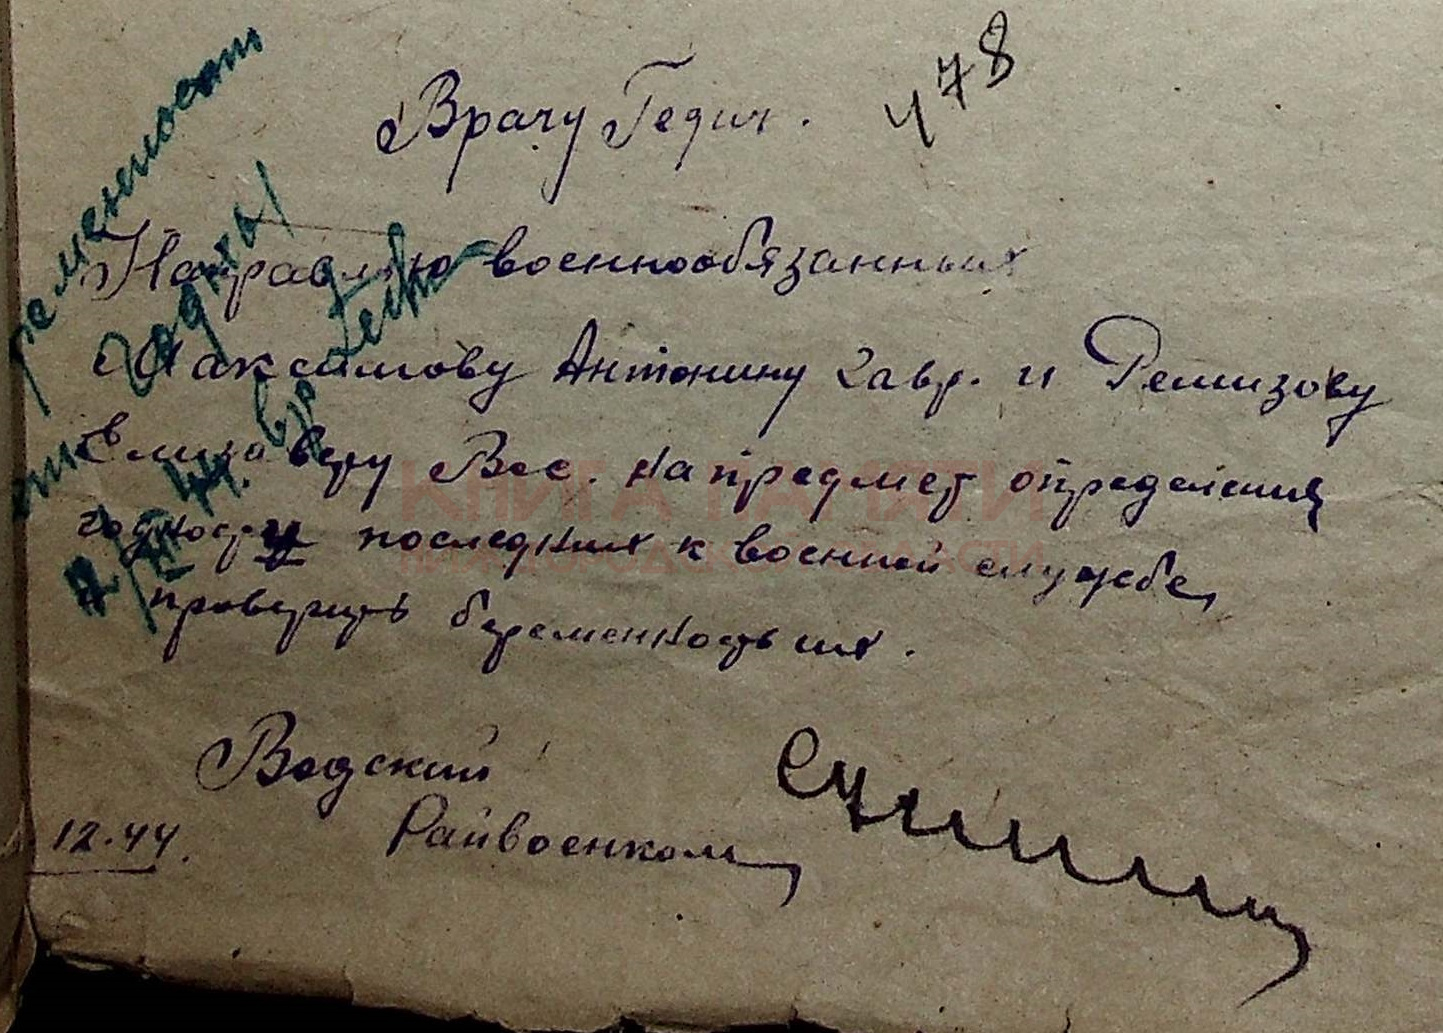 478
Врачу Гедич.
Направляю военнообязанных
Максимову Антонину Лавр. и Ремизову
Елизавету Вас. на предмет определения
годности последних к военной службе,
проверить беременность их.
Вадский
Райвоенком
12.44.
ременност
годны
КНИГА ПАМЯТИ
НИЖЕГОРОДСКОЙ ОБЛАСТИ